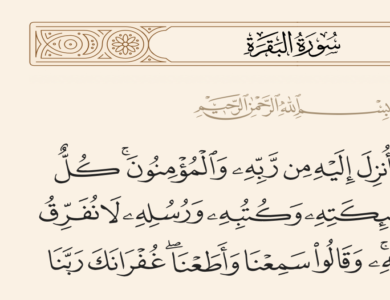 سُورَةُ البَقَرَةِ
بِسْمِ اللَّهِ الرَّحْمَٰنِ الرَّحِيمِ
أُنزِلَ إِلَيْهِ مِن رَّبِّهِۦ وَٱلْمُؤْمِنُونَ ۚ كُلٌّ
وَكُتُبِهِۦ وَرُسُلِهِۦ لَا نُفَرِّقُ
وَقَالُوا۟ سَمِعْنَا وَأَطَعْنَا ۖ غُفْرَانَكَ رَبَّنَا